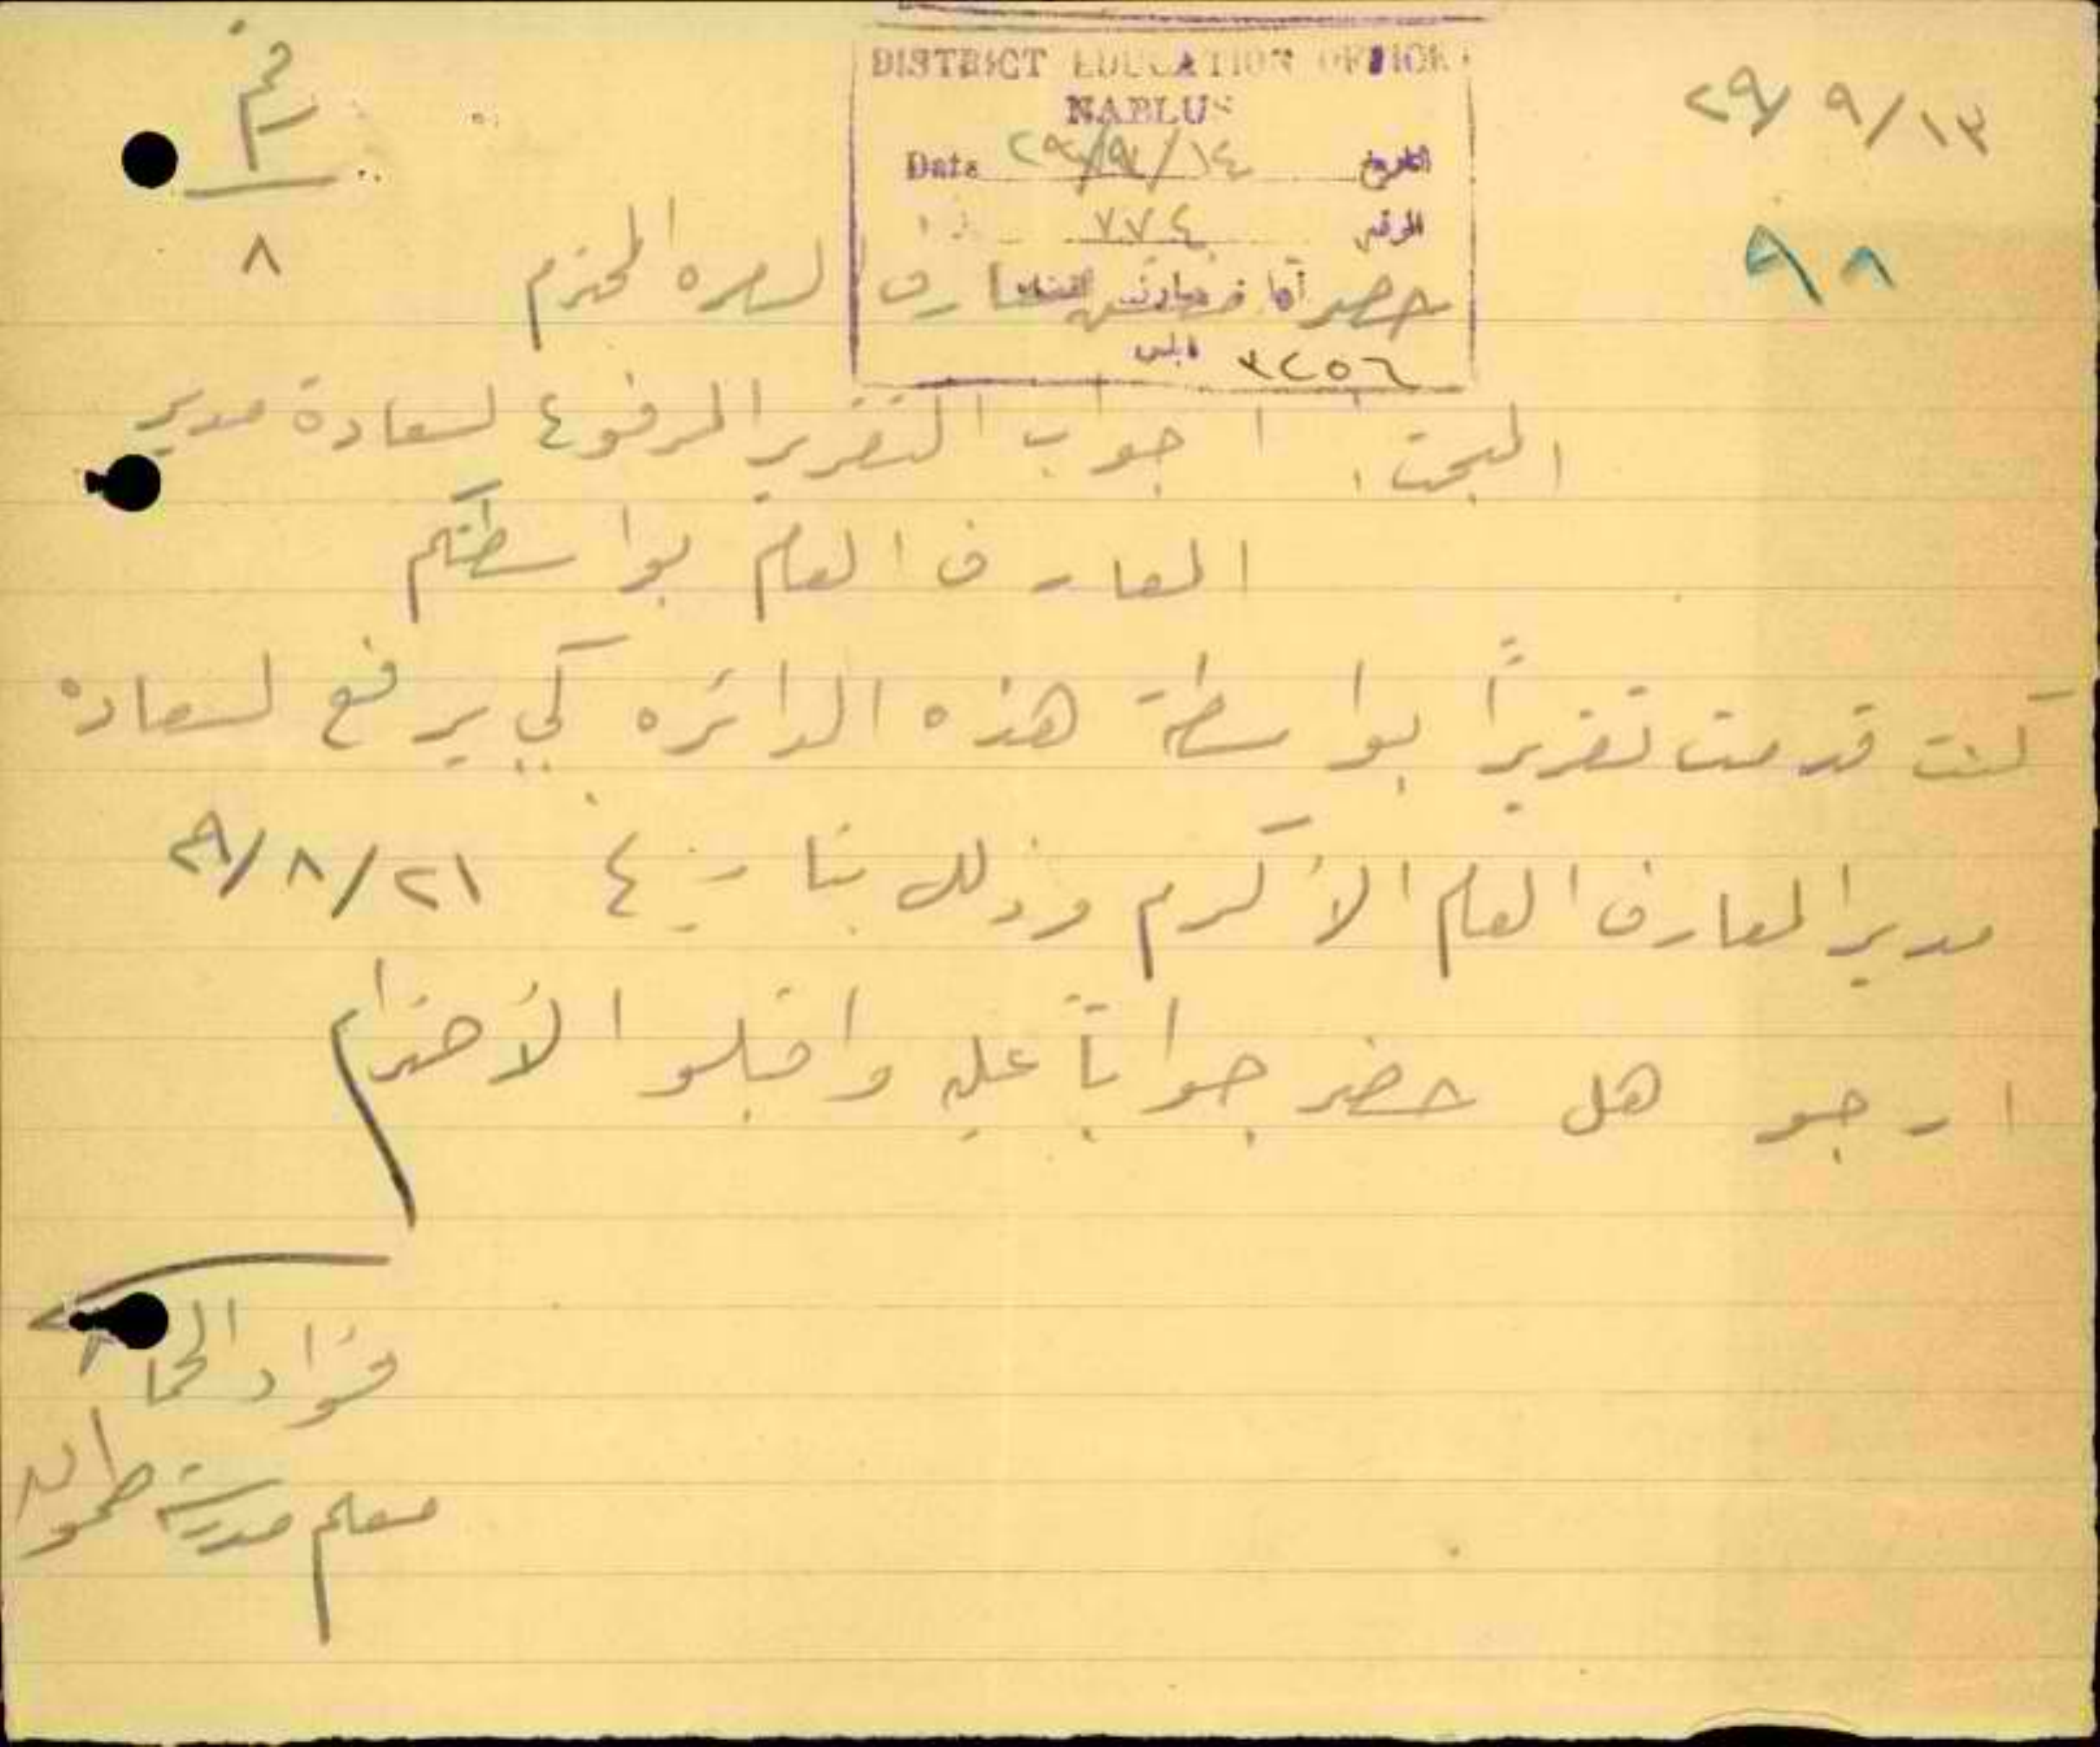 ٢٩/٩/١٣
رقم
٨
DISTRICT EDUCATION OFFICE
NABLUS
Date ٢٩/٩/١٤ التاريخ
٧٧٤ الرقم
نابلس
٣٢٥٦
٩٨
حضرة مفتش المعارف لسمره المحترم
البحث: جواب التقرير المرفوع لسعادة مدير
المعارف العام بواسطتكم
كنت قدمت تقريراً بواسطة هذه الدائره كي يرفع لسعاده
مدير المعارف العام الأكرم وذلك بتاريخ ٢٩/٨/٢١
ارجو هل حضر جواباً عليه واقبلوا الأحترام
فؤاد
معلم مدرسة طمون